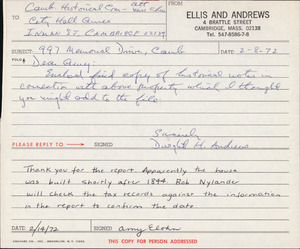 TO
Camb. Historical Com - att
City Hall Annex
Inman St. Cambridge 02139
FROM
ELLIS AND ANDREWS
4 BRATTLE STREET
CAMBRIDGE, MASS. 02138
Tel. 547-8586-7-8
SUBJECT: 997 Memorial Drive, Camb
DATE 2-8-72
FOLD
Dear Amy:
Enclosed find copy of historical notes in
connection with above property which I thought
you might add to the file.
Sincerely
PLEASE REPLY TO → SIGNED Dwight H. Andrews
Thank you for the report. Apparently the house
was built shortly after 1844. Rob Nylander
will check the tax records against the information
in the report to confirm the date
DATE 2/14/72 SIGNED Amy
THIS COPY FOR PERSON ADDRESSED